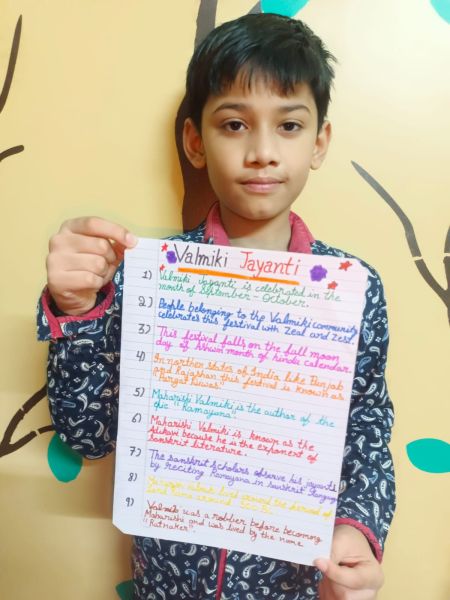 Valmiki Jayanti
1) Valmiki Jayanti is celebrated in the
month of September - October.
2) People belonging to the Valmiki community
celebrates this festival with Zeal and Zest.
3) This festival falls on the full moon
day of Ashwin month of hindi calendar.
4) In northen states of India like Punjab
and Rajasthan this festival is known as
"Pargat Diwas"
5) Maharishi Valmiki is the author of the
epic "Ramayana"
6) Maharishi Valmiki is known as the
Adikavi because he is the exponent of
sanskrit literature.
7) The sanskrit scholars observe his jayanti
by reciting Ramayana in sanskrit language
8) lived around the period of
Lord Rama around
9) Valmiki was a robber before becoming
Maharishi and was lived by the name
"Ratnaker".